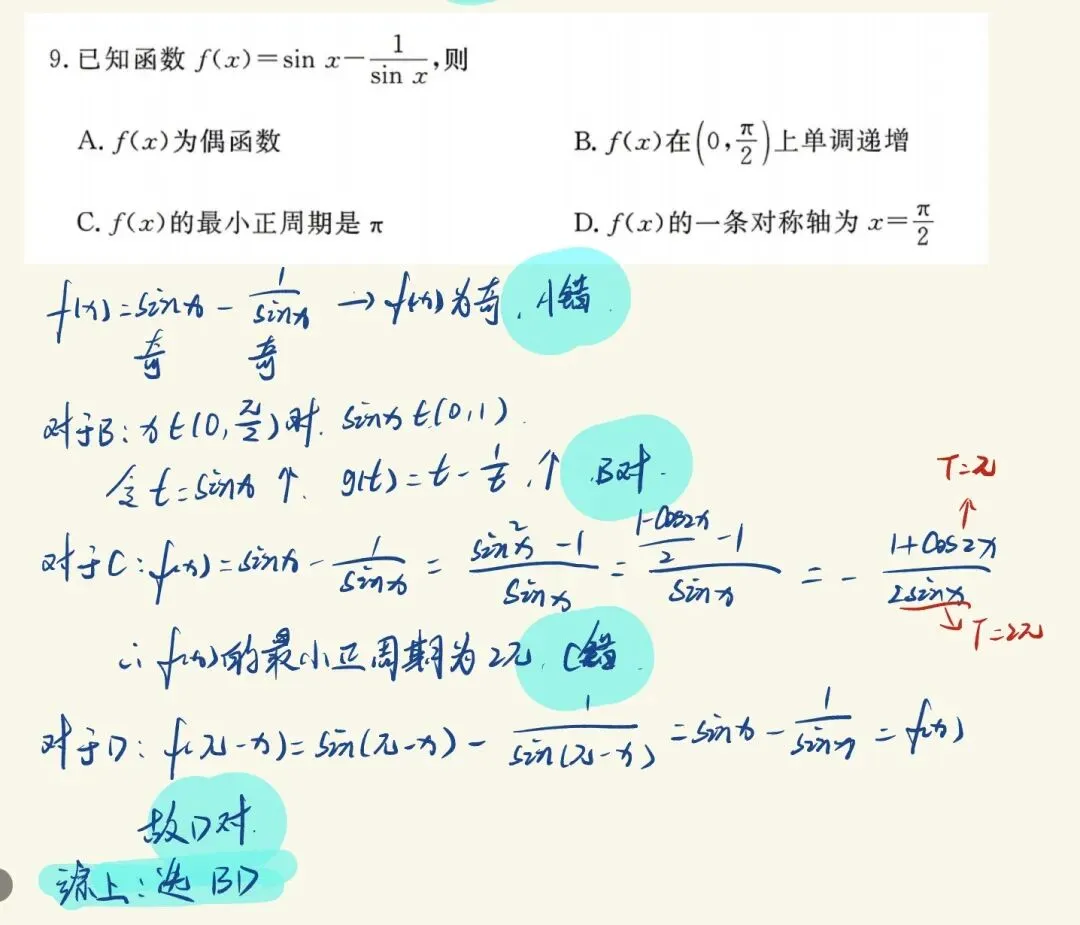 9. 已知函数 f(x)=sin x-1/sin x,则
A. f(x)为偶函数 B. f(x)在(0,π/2)上单调递增
C. f(x)的最小正周期是 π D. f(x)的一条对称轴为 x=π/2
f(x)=sinx - 1/sinx → f(x)为奇, A错.
奇 奇
对于B: x∈(0,π/2)时. sinx∈(0,1).
令 t=sinx ↑. g(t)=t-1/t. ↑ B对.
T=π
↑
对于C: f(x)=sinx-1/sinx = (sin²x-1)/sinx = ((1-cos2x)/2-1)/sinx = -(1+cos2x)/(2sinx)
↘ T=2π
∴ f(x)的最小正周期为2π, C错.
对于D: f(π-x)=sin(π-x)-1/sin(π-x)=sinx-1/sinx=f(x)
故D对.
综上: 选 BD